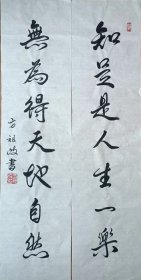 知足是人生一樂
無為得天地自然
方祖岐書